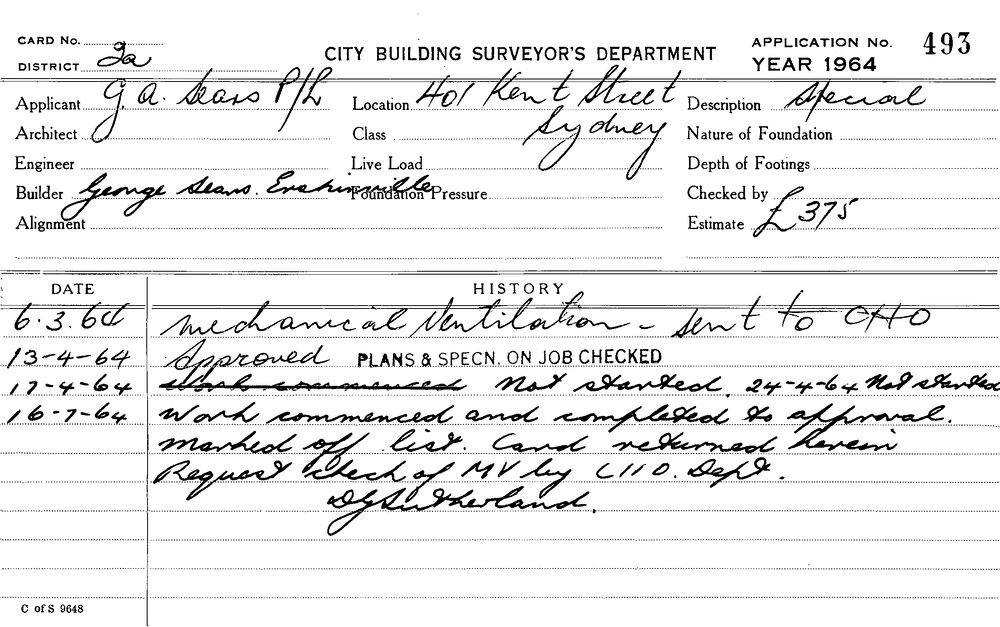 CARD No.
CITY BUILDING SURVEYOR'S DEPARTMENT
APPLICATION No. 493
DISTRICT 2a
YEAR 1964
Applicant G. A. Sears P/L Location 401 Kent Street Description Special
Architect Class Sydney Nature of Foundation
Engineer Live Load Depth of Footings
Builder George Sears. Erskinville Foundation Pressure Checked by
Alignment Estimate £375
DATE HISTORY
6.3.64 Mechanical Ventilation - sent to CHO
13-4-64 Approved PLANS & SPECN. ON JOB CHECKED
17-4-64 Work commenced Not started. 24-4-64 Not started
16-7-64 Work commenced and completed to approval.
Marked off list. Card returned herein
Request check of MV by CHO. Dept.
DGSutherland.
C of S 9648